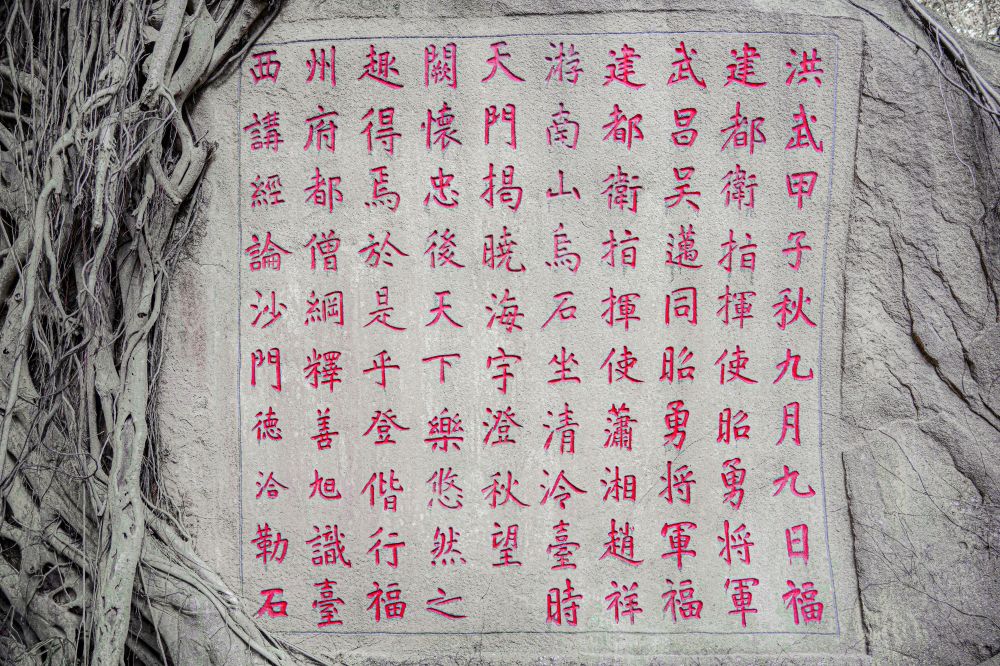 洪武甲子秋九月九日福
建都衛指揮使昭勇将軍
武昌吴邁同昭勇将軍福
建都衛指揮使瀟湘趙祥
游南山烏石坐清泠臺時
天門揭曉海宇澄秋望
闕懷忠後天下樂悠然之
趣得焉於是乎登偕行福
州府都僧綱釋善旭識臺
西講經論沙門德洽勒石